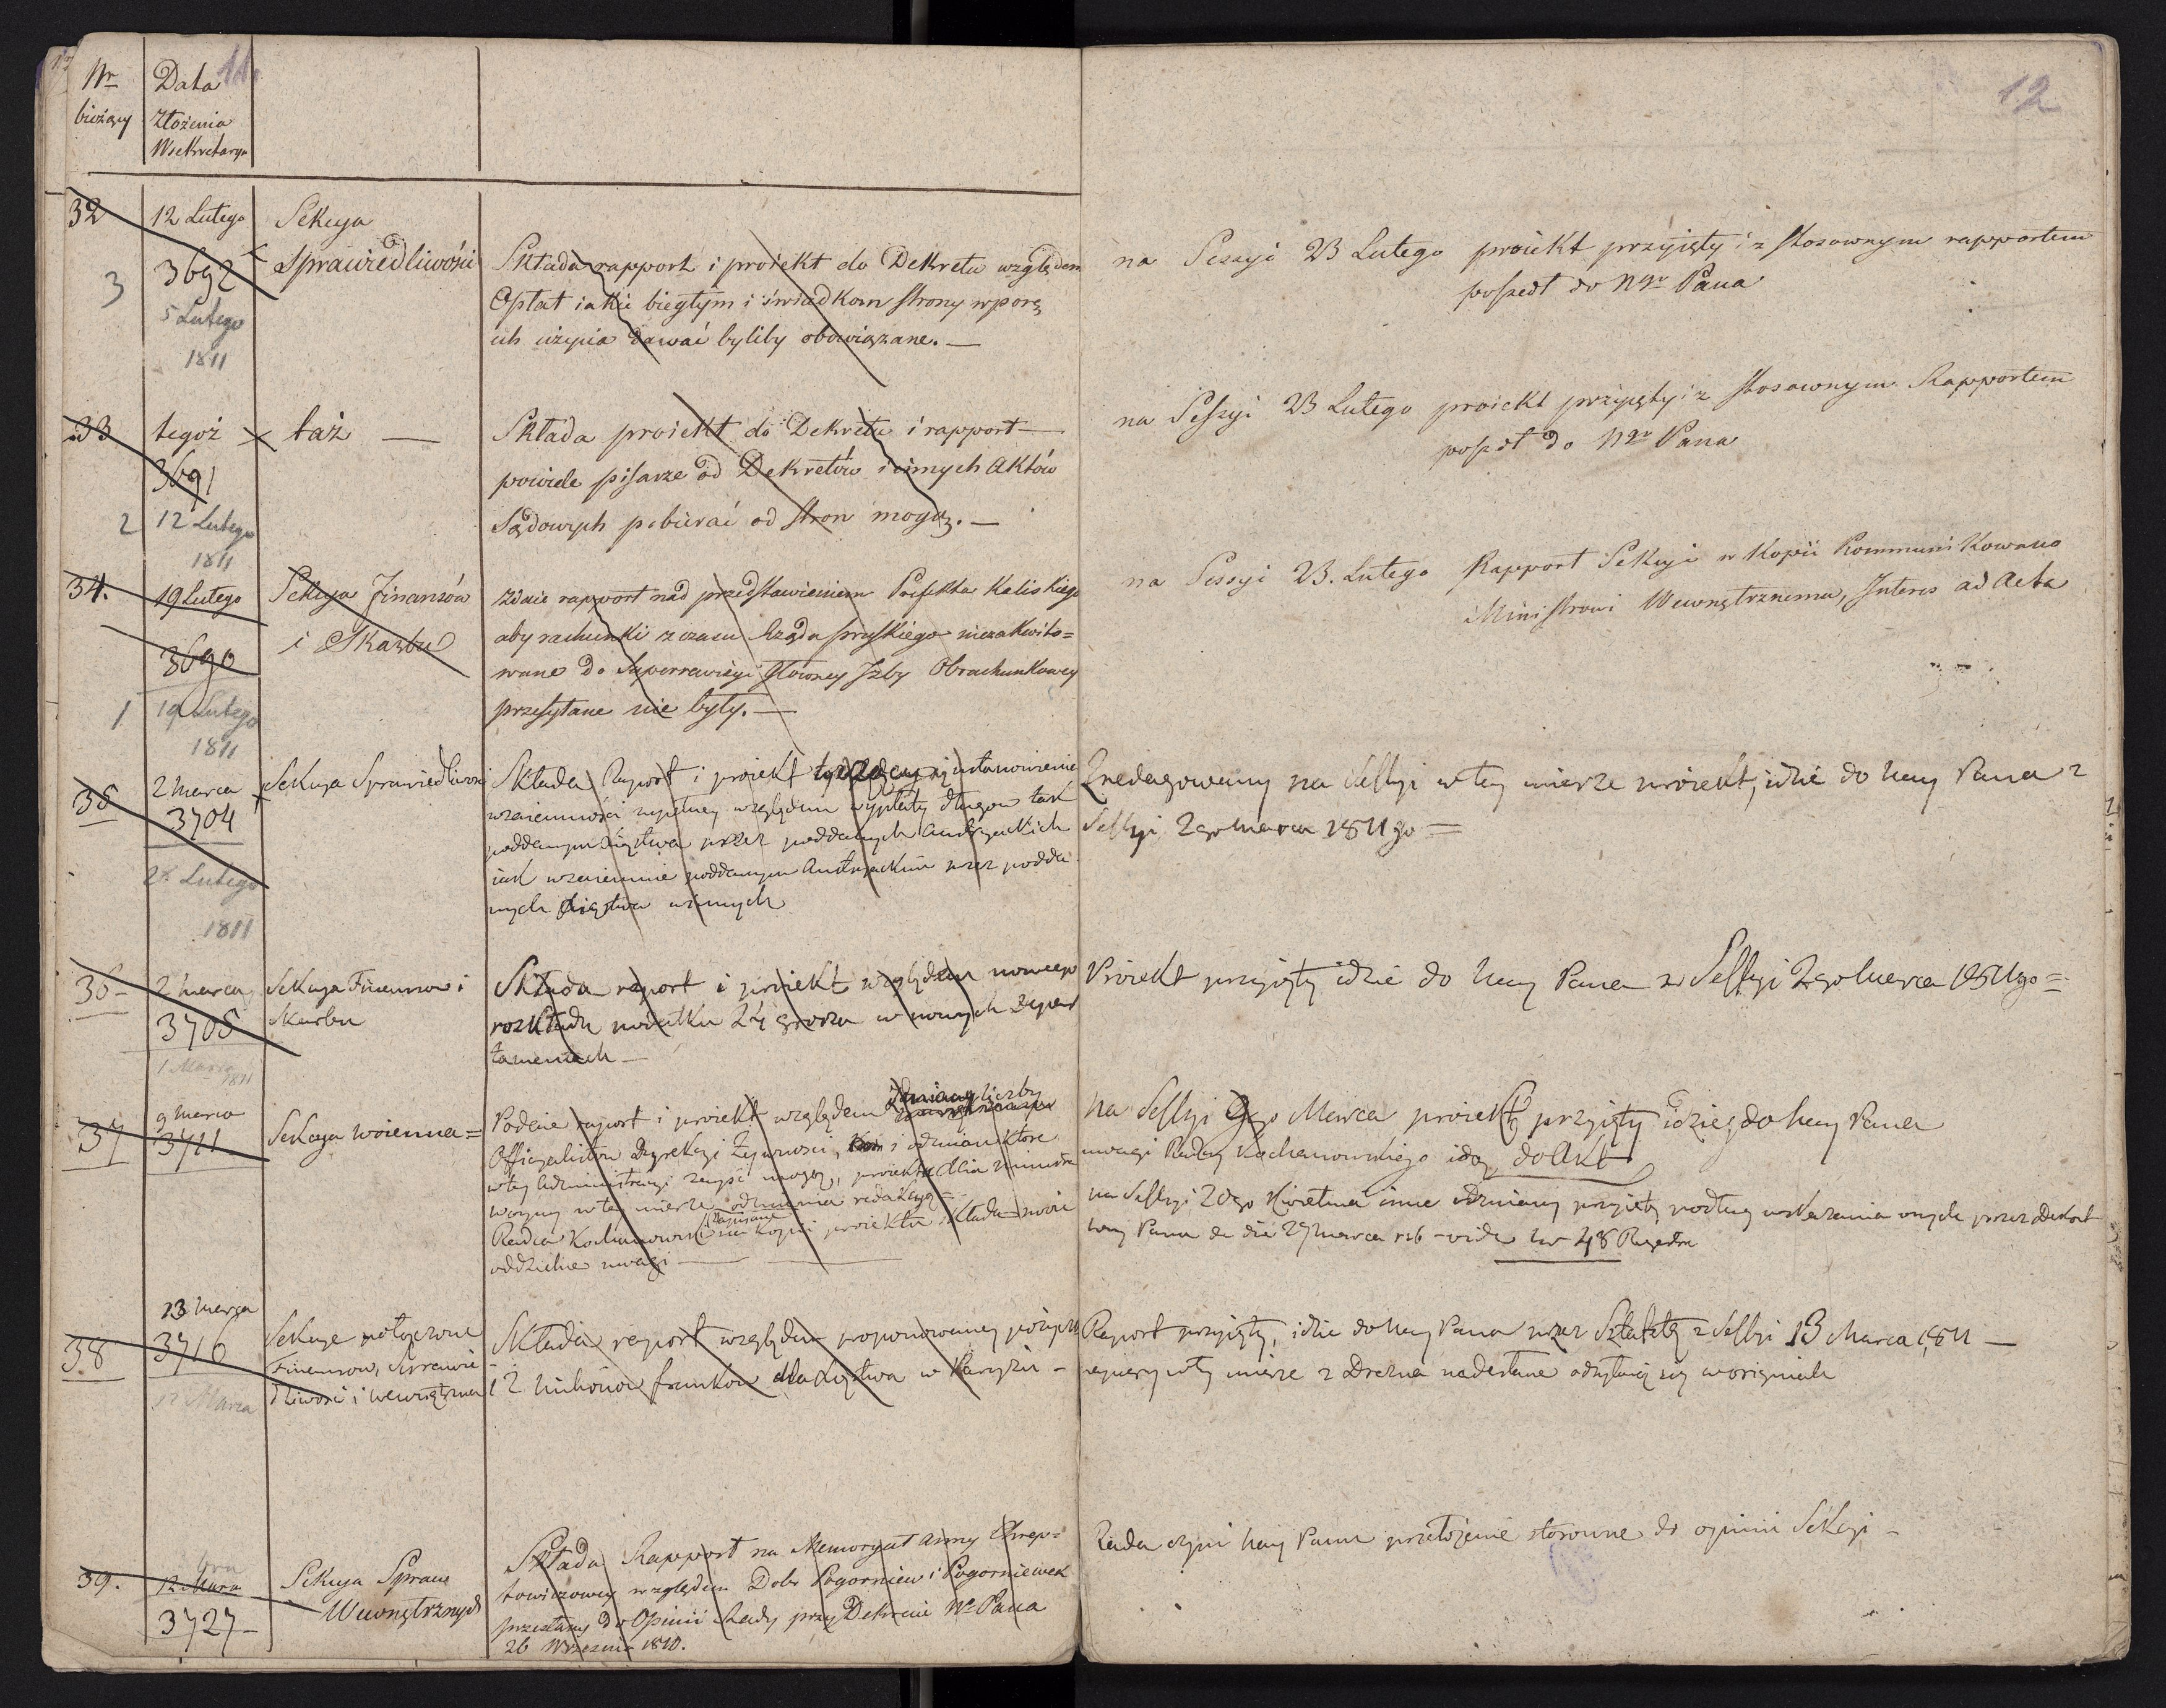 Nr Data 11.
bieżący Złożenia
W Sekretaryi
12
32 12 Lutego Sekcya
3 3692 Sprawiedliwości Składa rapport i proiekt do Dekretu względem
5 Lutego Opłat iakie biegłym i świadkom strony w porę
1811 ich użycia dawać byliby obowiązane. —
na Sessyi 23 Lutego proiekt przyięty i z stosownym rapportem
poszedł do Ngo Pana
33 tegoż × taż — Składa proiekt do Dekretu i rapport —
3691 powiele pisarze od Dekretów i innych Aktów
2 12 Lutego Sądowych pobierać od stron mogą. —
1811
na Sessyi 23 Lutego proiekt przyięty i z stosownym Rapportem
poszedł do Ngo Pana
34. 19 Lutego Sekcya Finansów Zdaie rapport nad przedstawieniem Prefekta Kaliskiego
3690 i Skarbu aby rachunki z czasu Rządu pruskiego niezakwito=
1 19 Lutego wane do Superrewizyi Główney Izby Obrachunkowey
1811 przesyłane nie były. —
na Sessyi 23. Lutego Rapport Sekcyi w Kopii Kommunikowano
Ministrowi Wewnętrznemu, Interes ad Acta
35 2 Marca × Sekcya Sprawiedliwości Składa Raport i proiekt ustanowienie
3704 wzaiemności względem wypłaty długów tak
Lutego poddanym Xięstwa przez poddanych Austryackich
1811 iak wzaiemnie poddanym Austryackim przez podda
nych Xięstwa winnych
Zredagowany na Sessyi w tey mierze proiekt, idzie do Nay Pana z
Sessyi 2go Marca 1811go =
36 2 Marca Sekcya Finansow i Składa raport i proiekt względem nowego
3705 Skarbu rozkładu podatku 24 grosza w nowych Depar
1 Marca 1811 tamentach —
Proiekt przyięty idzie do Nay Pana z Sessyi 2go Marca 1811go =
37 9 Marca
3711 Sekcya woienna = Podaie raport i proiekt względem zmiany liczby
Officyalistow Dyrekcyi Żywności, i odmian ktore
w tey Administracyi zayść mogą, proiektu dla Ministra
Woyny w tey mierze odmienna redakcyą
Radca Kochanowski zapisane na kopii proiektu składa swoie
oddzielne uwagi —
na Sessyi 9go Marca proiekt przyięty idzie do Nay Pana
uwagi Radcy Kochanowskiego idą do Akt
na Sessyi 20go Kwietnia inne odmiany przyięte podług wskazania onych przez Dekret
Nay Pana de die 27 Marca rb – vide Nr 48 Regestru
13 Marca
38 3716 Sekcye połączone Składa raport względem proponowaney pożyczki
12 Marca Finansow, Sprawie 12 Milionow frankow dla Xięstwa w Paryżu –
dliwości i wewnętrzna
Raport przyięty, idzie do Nay Pana przez Sztafetę z Sessyi 13 Marca 1811 —
papiery w tey mierze z Drezna nadesłane odsyłaią się w originale
39. 12 Marca Sekcya Spraw Składa Rapport na Memoryał Anny
3727 – Wewnętrznych towiczowey względem Dobr Pogorniew i Pogorniewek
przesłany do Opinii Rady przy Dekrecie No Pana
26 Września 1810.
Rada czyni Nay Panu przełożenie stosowne do opinii Sekcyi –